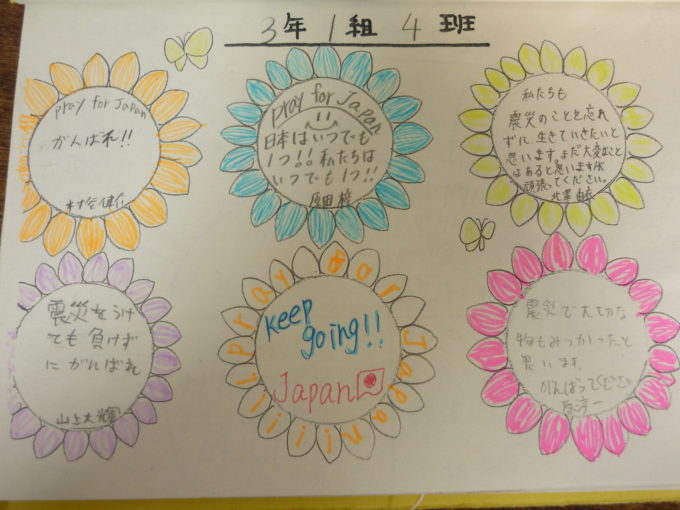 3年1組4班
pray for Japan
がんばれ!!
pray for Japan
日本はいつでも
1つ!!。私たちは
いつでも1つ!!
原田 梓
私たちも
震災のことを忘れ
ずに生きていきたいと
思います。まだ大変なこと
はあると思いますが
頑張ってください。
震災をうけ
ても負けず
にがんばれ
山上大輝
pray for Japaniiiii
keep
going!!
Japan
震災で大切な
物もみつかったと
思います。
がんばって